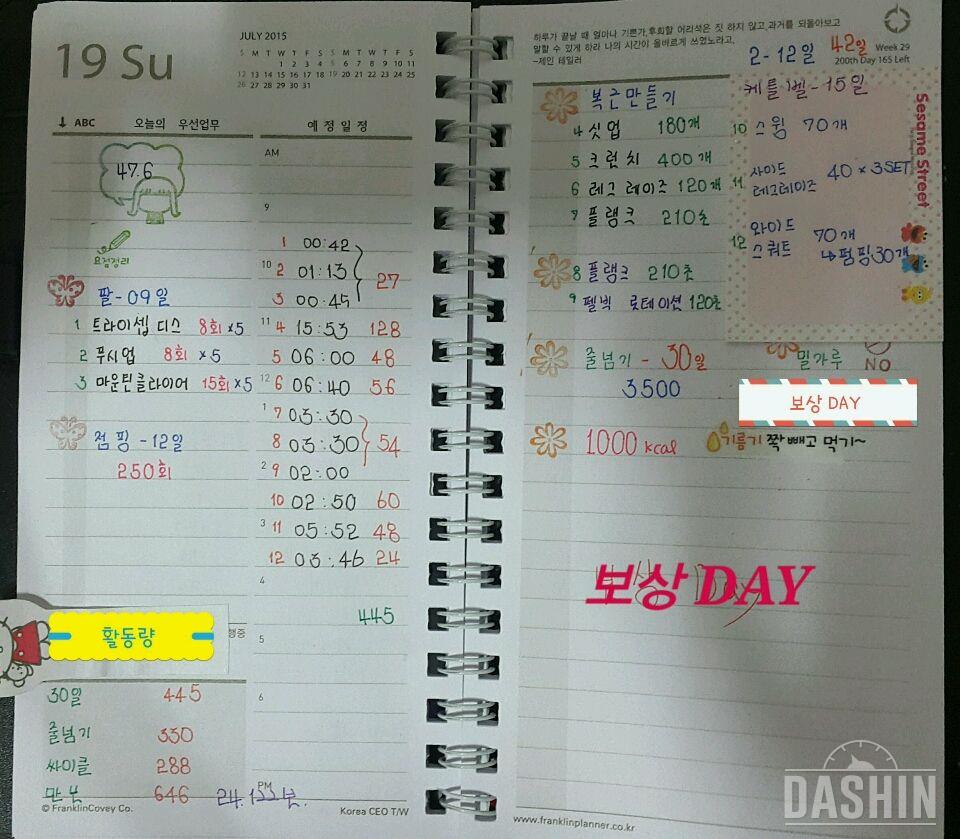 19 Su
JULY 2015
S M T W T F S S M T W T F S
1 2 3 4 5 6 7 8 9 10 11
12 13 14 15 16 17 18 19 20 21 22 23 24 25
26 27 28 29 30 31
↓ ABC 오늘의 우선업무
47.6
요점정리
팔-09일
1 트라이셉 디스 8회 ×5
2 푸시업 8회 ×5
3 마운틴클라이머 15회 ×5
점핑 - 12일
250회
활동량
행중
30일 445
줄넘기 330
싸이클 288
만보 646
24.133분.
© FranklinCovey Co.
예정일정
AM
9
1 00:42
10 2 01:13 27
3 00:45
11 4 15:53 128
5 06:00 48
12 6 06:40 56
1 7 03:30
8 03:30 54
2 9 02:00
10 02:50 60
3 11 05:52 48
12 03:46 24
4
445
5
6
PM
Korea CEO T/W
하루가 끝날 때 얼마나 기쁜가,후회할 어리석은 짓 하지 않고,과거를 되돌아보고
말할 수 있게 하라 나의 시간이 올바르게 쓰였노라고,
-제인 테일러
2-12일 42일
Week 29
200th Day 165 Left
복근만들기
4 싯업 180개
5 크런치 400개
6 레그 레이즈 120개
7 플랭크 210초
8 플랭크 210초
9 펠빅 롯테이션 120초
케틀벨-15일
10 스윙 70개
11 사이드
레그레이즈 40 × 3SET
12 와이드
스쿼트 70개
↳펌핑30개
Sesame Street
줄넘기 - 30일
3500
밀가루
NO
보상 DAY
1000 kcal
기름기 쫙 빼고 먹기~
보상 DAY
www.franklinplanner.co.kr
DASHIN